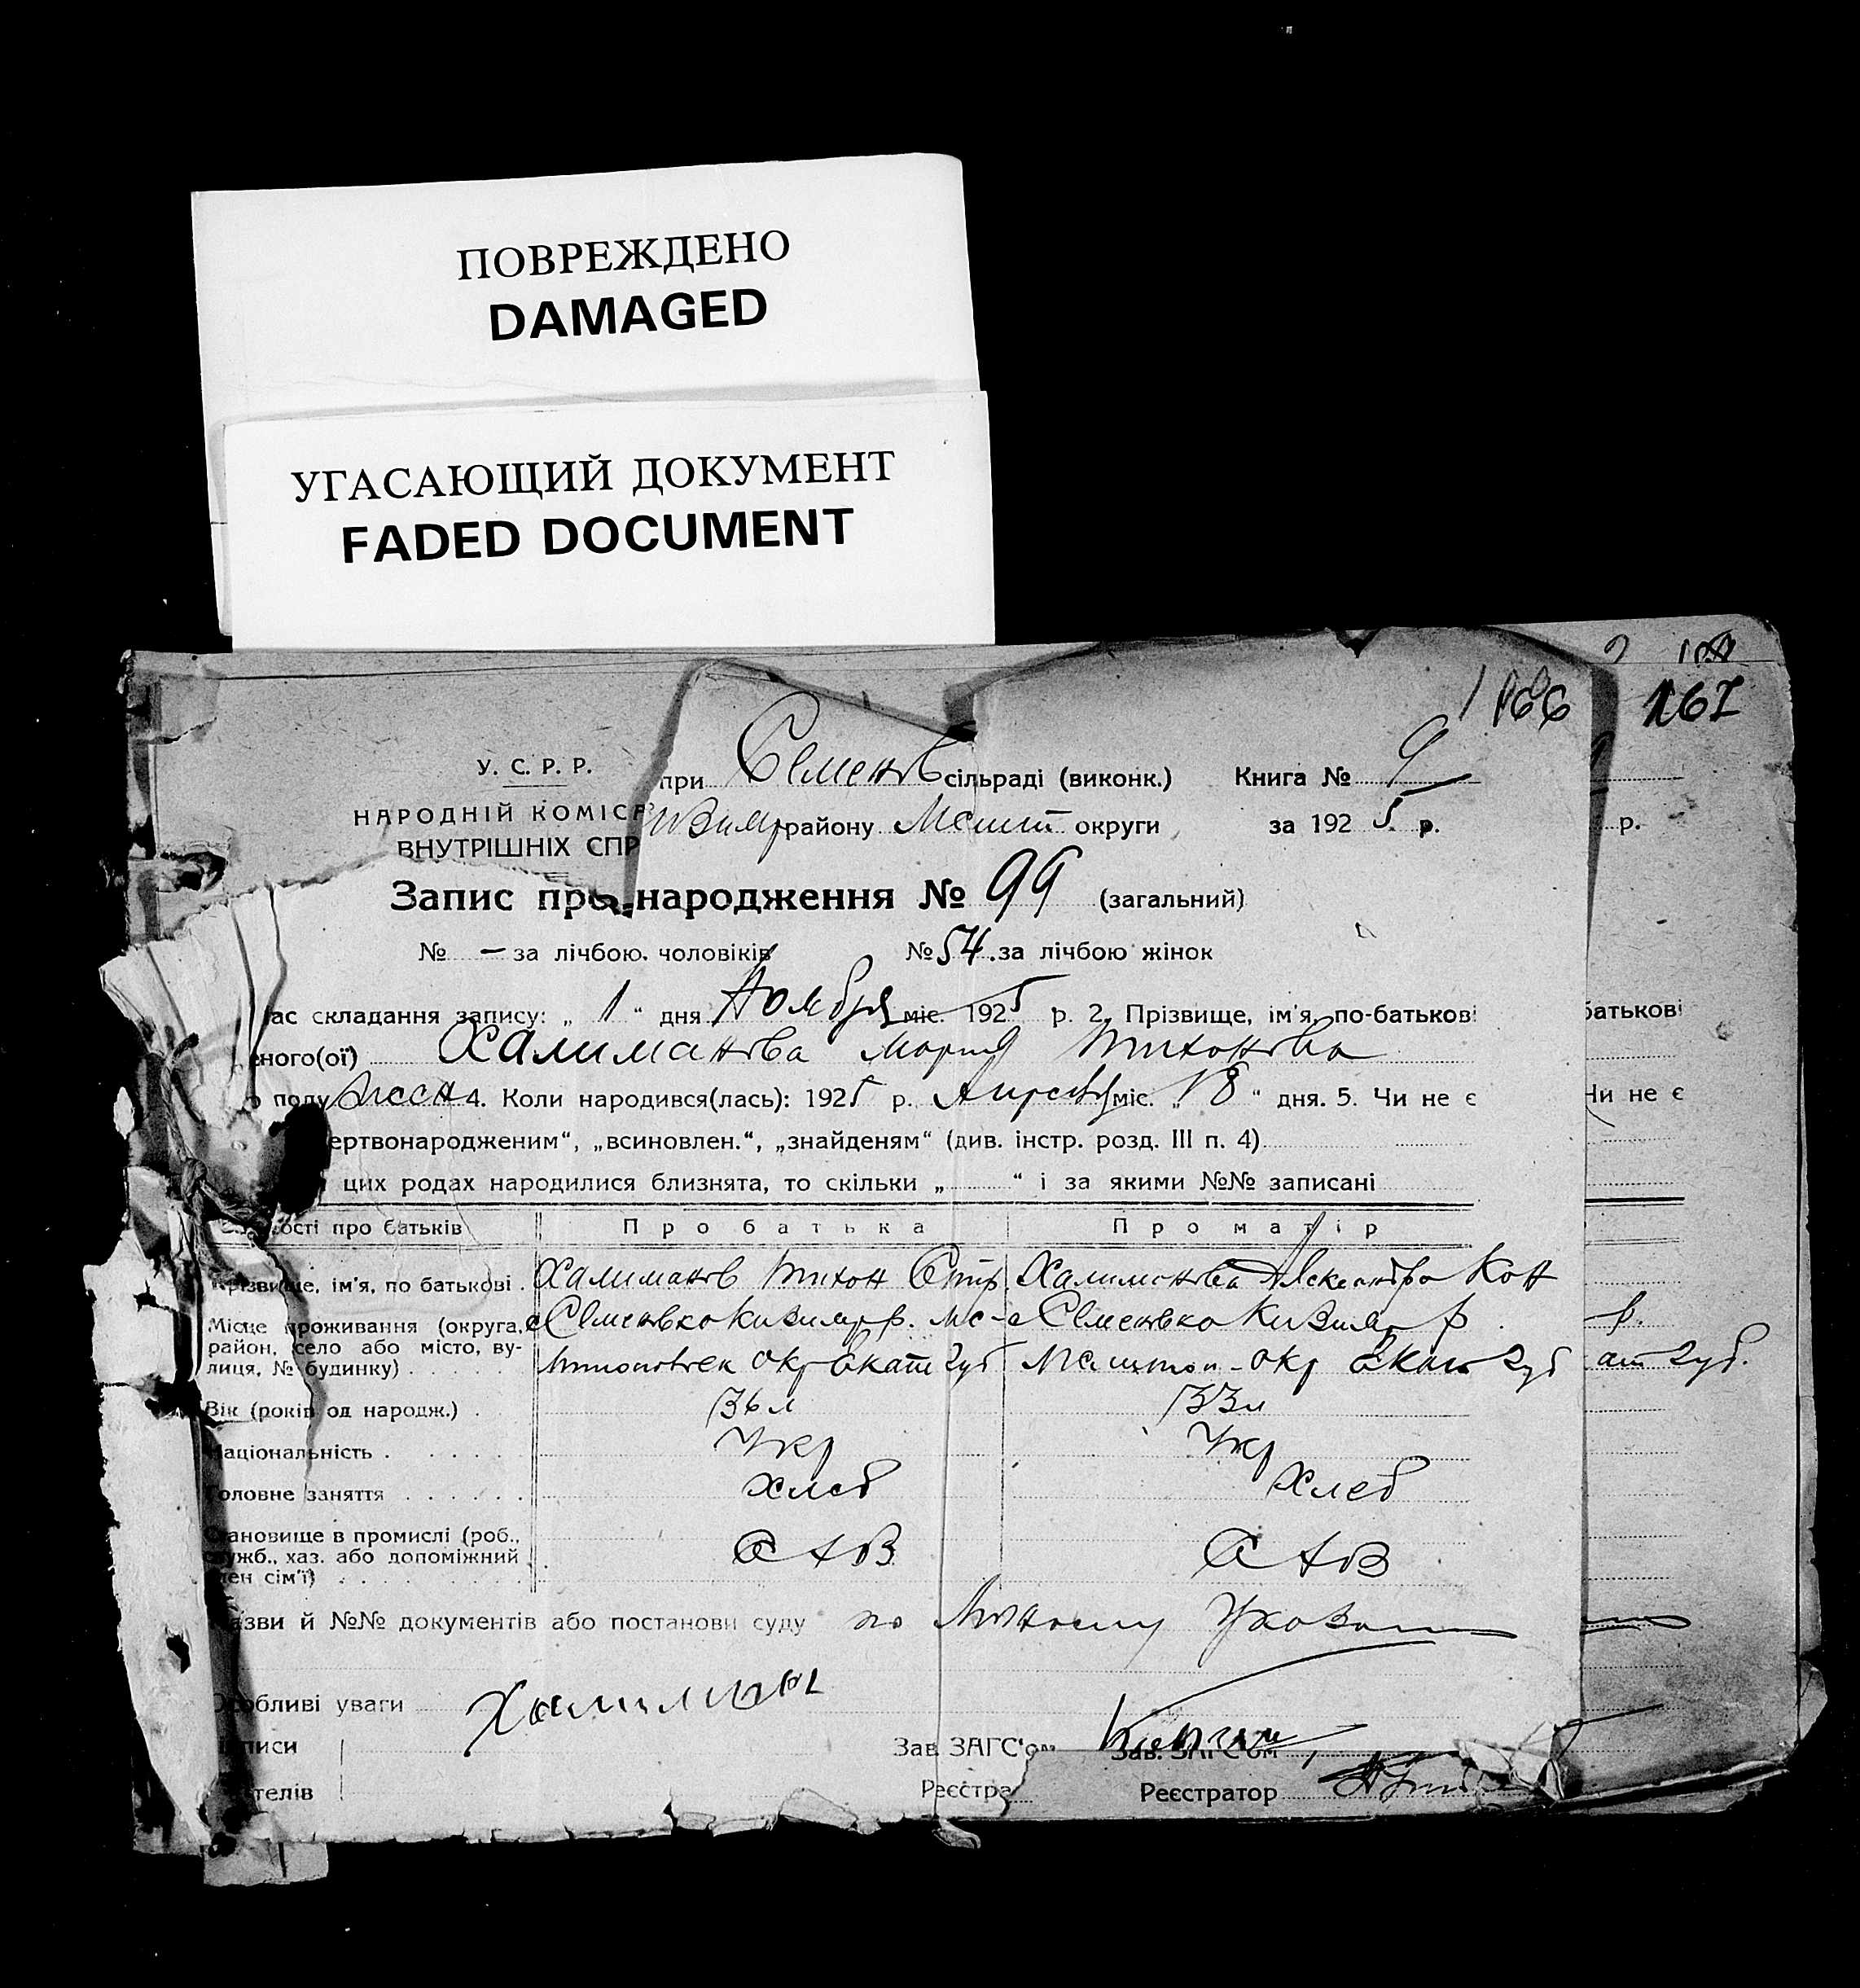 ПОВРЕЖДЕНО
DAMAGED
УГАСАЮЩИЙ ДОКУМЕНТ
FADED DOCUMENT
166 167
У. С. Р. Р.
при Семенов сільраді (виконк.) Книга № 9
НАРОДНІЙ КОМІС
району округи за 1925 р. р.
ВНУТРІШНІХ СПР
Запис про народження № 99 (загальний)
№ — за лічбою чоловіків № 54 за лічбою жінок
ас складання запису: „ 1 “ дня Ноября міс. 1925 р. 2. Прізвище, ім'я, по-батькові батькові
еного(ої) Халиманова Мария Тихоновна
полу женс 4. Коли народився(лась): 1925 р. Апреля міс. „18“ дня. 5. Чи не є Чи не є
ертвонародженим“, „всиновлен.“, „знайденям“ (див. інстр. розд. III п. 4)
цих родах народилися близнята, то скільки „ “ і за якими №№ записані
ості про батьків Про батька Про матір
Прізвище, ім'я, по батькові Халиманов Тихон Халиманова Александра Кон
Місце проживання (округа, с Семеновко р. с Семеновко р р.
район, село або місто, ву-
лиця, № будинку) окр Екат губ окр Екат губ ат губ.
Вік (років од народж.) 36 л 33 л
Національність Укр Укр
Головне заняття хлеб хлеб
тановище в промислі (роб.,
служб., хаз. або допоміжний
лен сім'ї)
азви й №№ документів або постанови суду по
Особливі уваги
писи Зав. ЗАГС'ом Зав. ЗАГС'ом
телів Реєстра Реєстратор